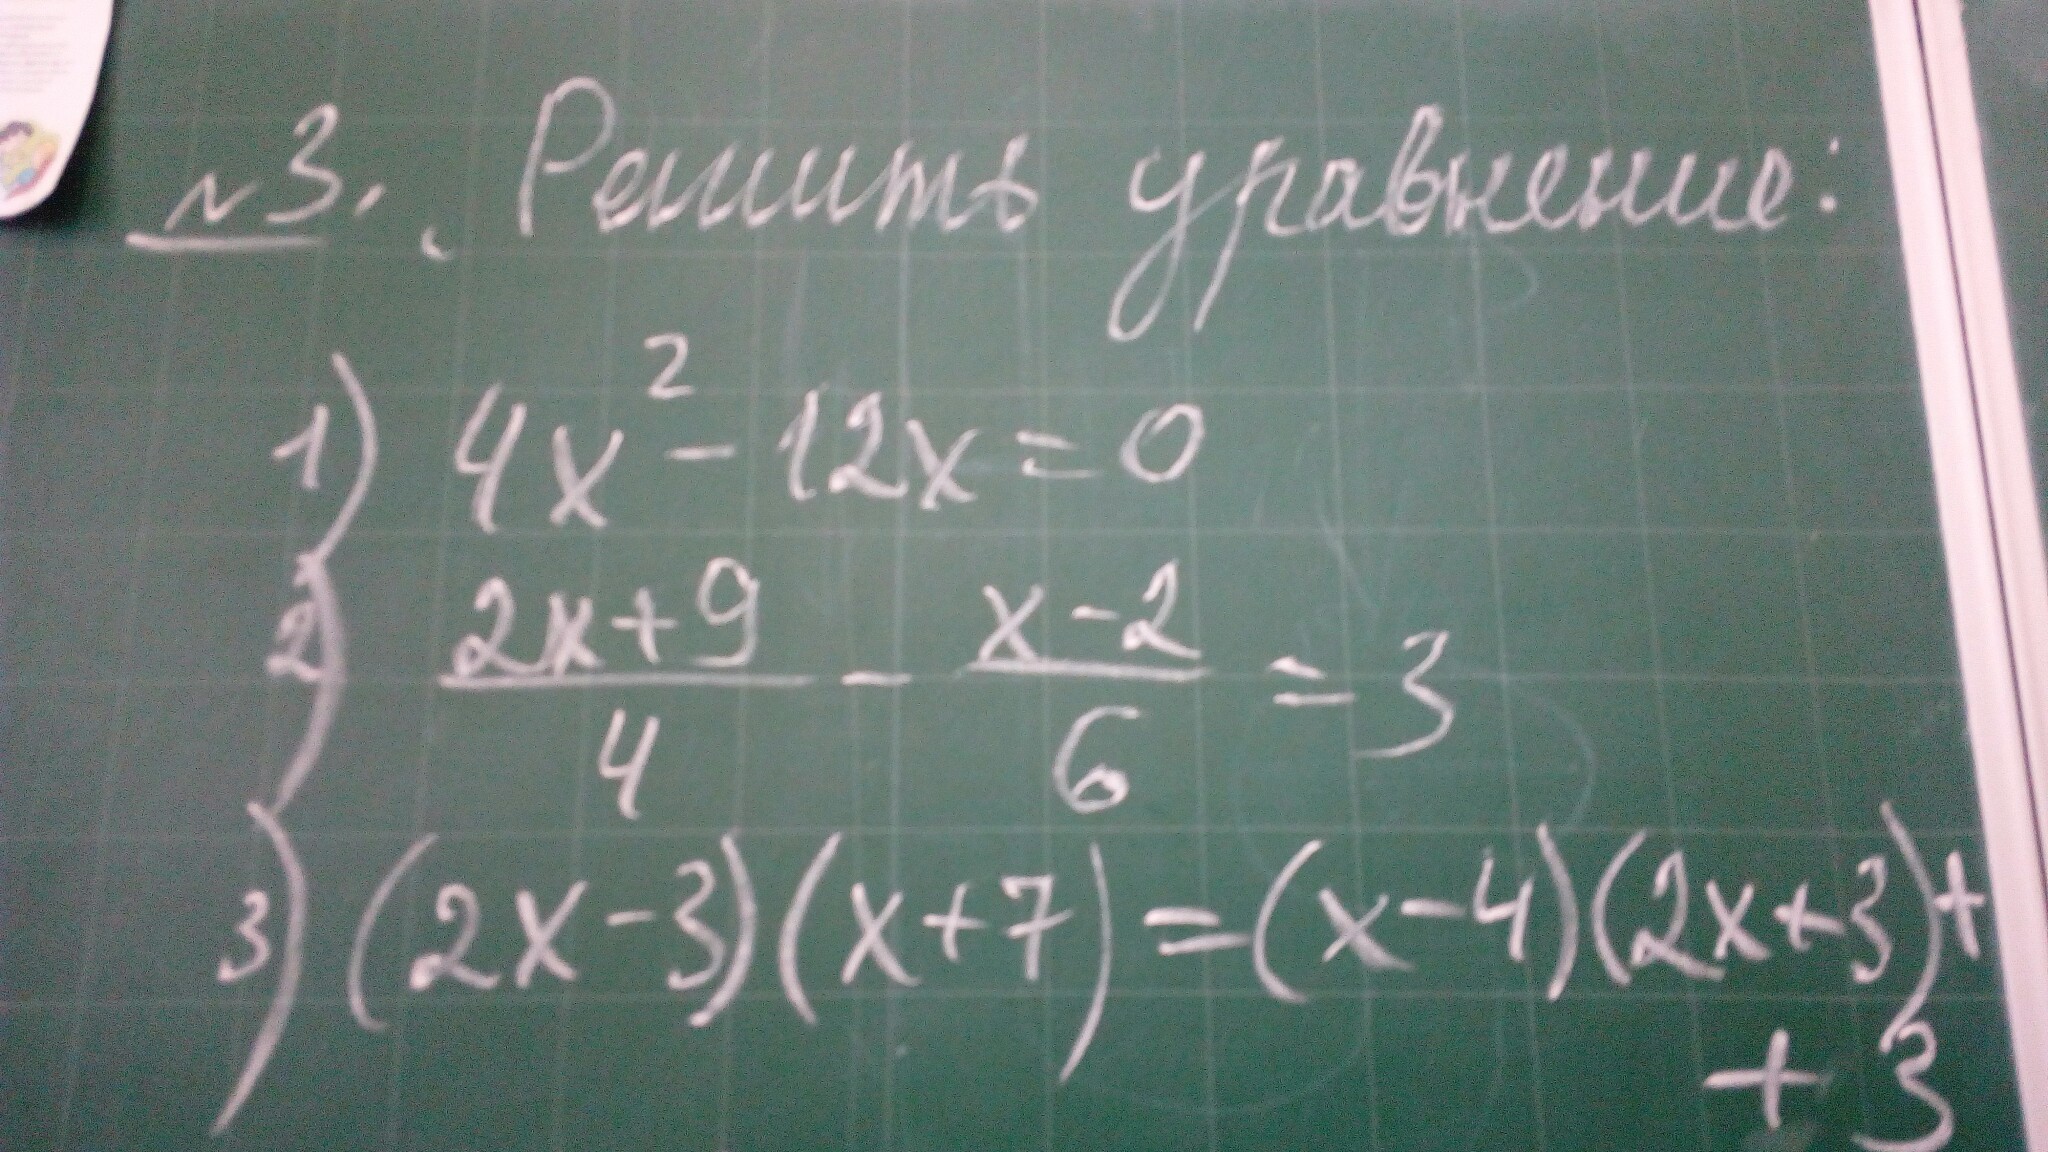 №3. Решить уравнение:
1) 4x² - 12x = 0
2) (2x+9)/4 - (x-2)/6 = 3
3) (2x-3)(x+7) = (x-4)(2x+3)+
+3